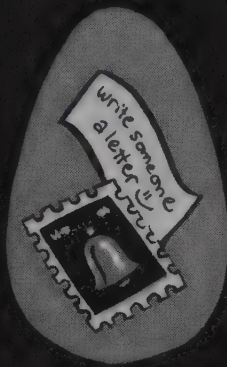 write someone
a letter :)